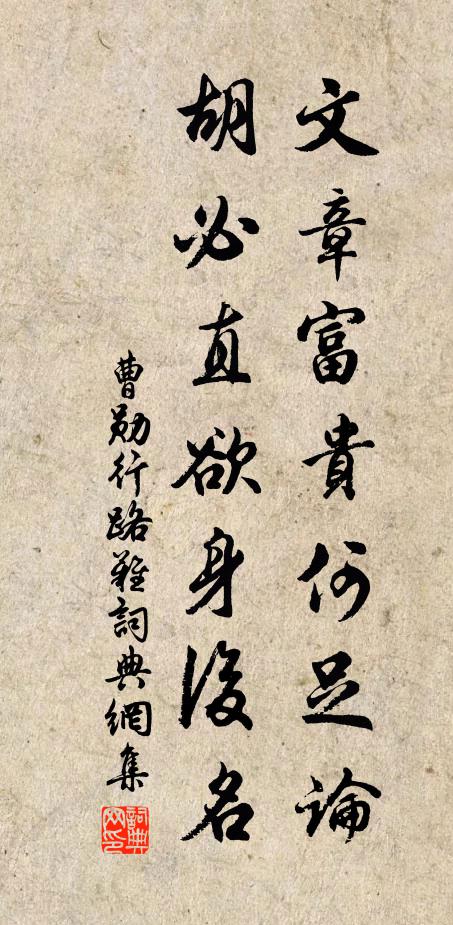 文章富貴何足論
胡必直欲身後名
曹勛行路難詞典網集
詞典网印